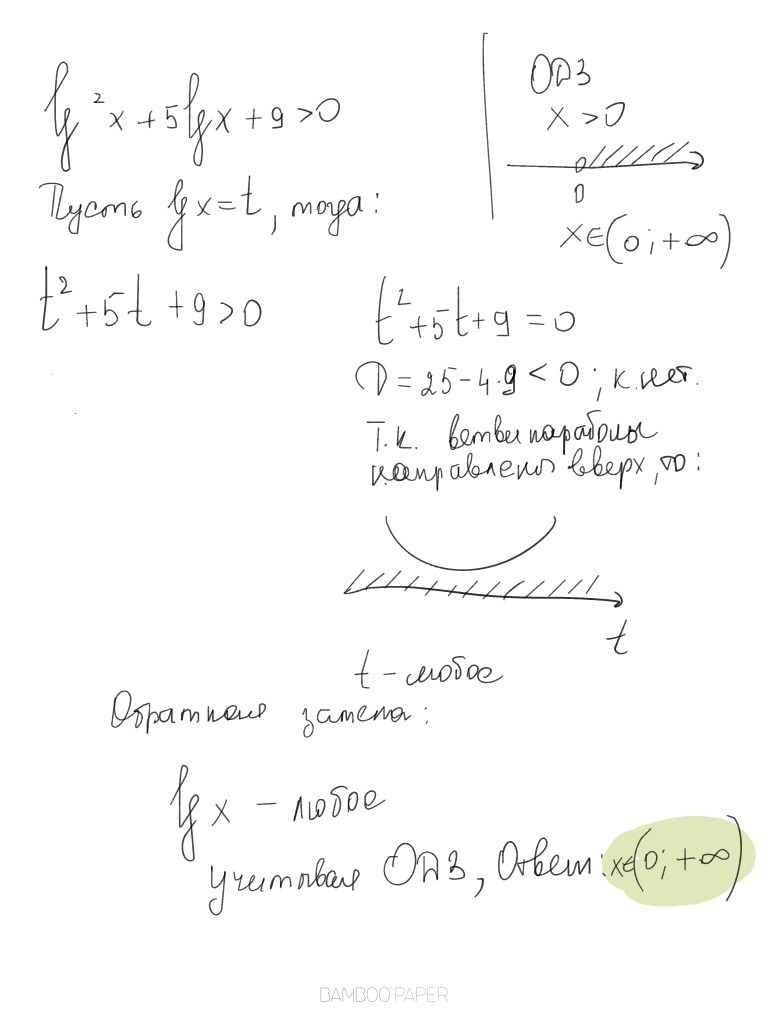 lg²x + 5lgx + 9 > 0
ОДЗ
x > 0
0
x∈(0; +∞)
Пусть lgx = t, тогда:
t² + 5t + 9 > 0
t² + 5t + 9 = 0
D = 25 - 4·9 < 0; к. нет.
Т.к. ветви параболы
направлены вверх, то:
t
t - любое
Обратная замена:
lgx - любое
учитывая ОДЗ, Ответ: x∈(0; +∞)
BAMBOO PAPER